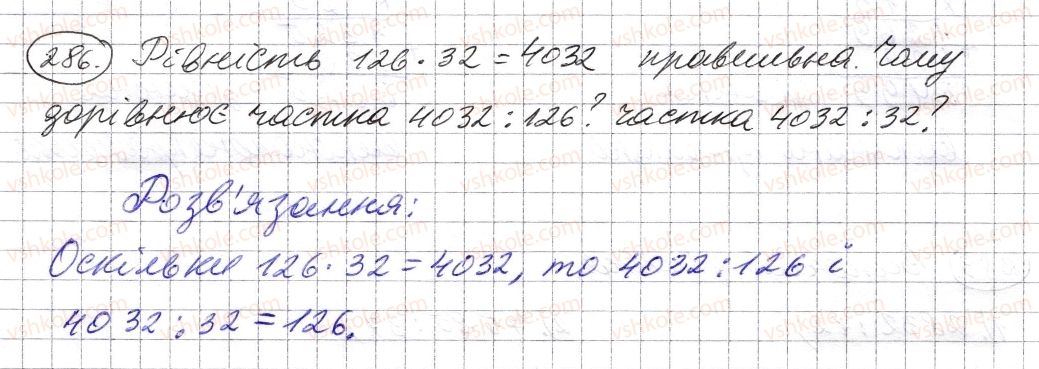 286. Рівність 126 · 32 = 4032 правильна. Чому
дорівнює частка 4032 : 126? частка 4032 : 32?
Розв'язання:
Оскільки 126 · 32 = 4032, то 4032 : 126 і
4032 : 32 = 126.